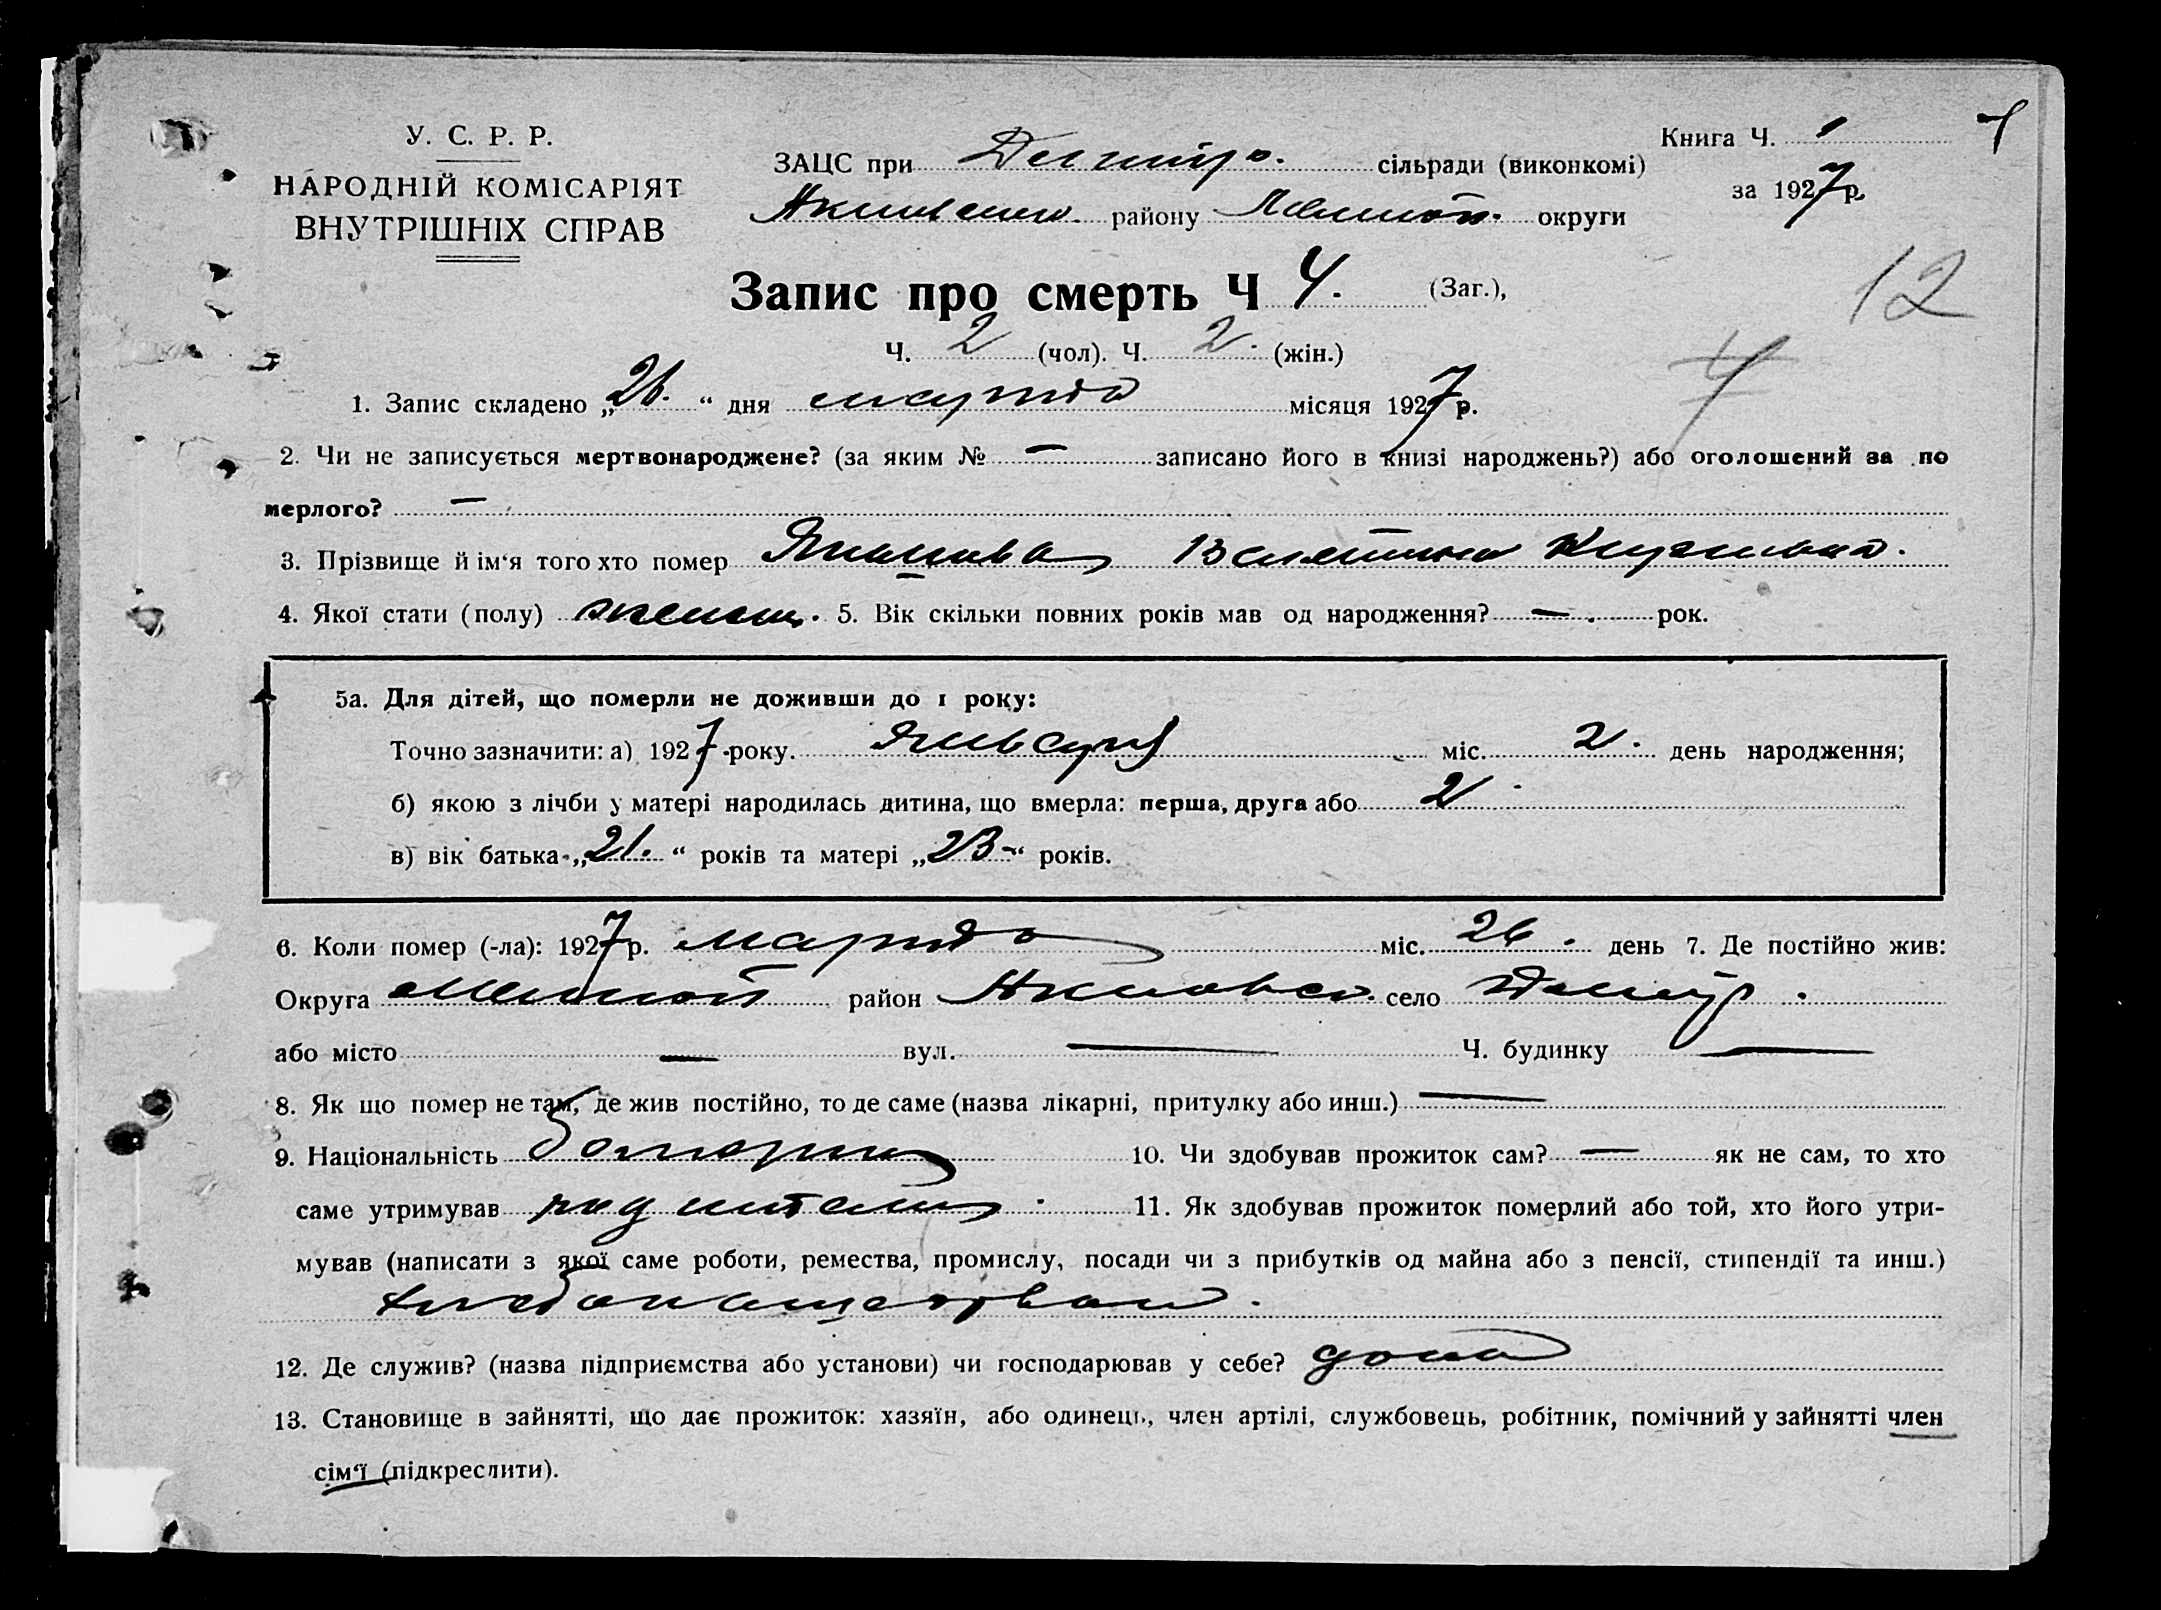 У. С. Р. Р.
НАРОДНІЙ КОМІСАРІЯТ
ВНУТРІШНІХ СПРАВ
Книга Ч. 1
за 1927 р.
ЗАЦС при сільради (виконкомі)
району округи
Запис про смерть Ч 4. (Заг.),
12
Ч. 2 (чол). Ч. 2. (жін.)
4
1. Запис складено „26.“ дня марта місяця 1927 р.
2. Чи не записується мертвонароджене? (за яким № — записано його в книзі народжень?) або оголошений за по
мерлого? —
3. Прізвище й ім‘я того хто помер
4. Якої стати (полу) женщ. 5. Вік скільки повних років мав од народження? — . рок.
5а. Для дітей, що померли не доживши до 1 року:
Точно зазначити: а) 1927 року. января міс. 2. день народження;
б) якою з лічби у матері народилась дитина, що вмерла: перша, друга або 2
в) вік батька „21.“ років та матері „23“ років.
6. Коли помер (-ла): 1927 р. марта міс. 26. день 7. Де постійно жив:
Округа район село
або місто — вул. — Ч. будинку —
8. Як що помер не там, де жив постійно, то де саме (назва лікарні, притулку або инш.) —
9. Національність болгарин 10. Чи здобував прожиток сам? — як не сам, то хто
саме утримував родители 11. Як здобував прожиток померлий або той, хто його утри-
мував (написати з якої саме роботи, ремества, промислу, посади чи з прибутків од майна або з пенсії, стипендії та инш.)
хлебопашеством.
12. Де служив? (назва підприємства або установи) чи господарював у себе? дома
13. Становище в зайнятті, що дає прожиток: хазяїн, або одинець, член артілі, службовець, робітник, помічний у зайнятті член
сім‘ї (підкреслити).